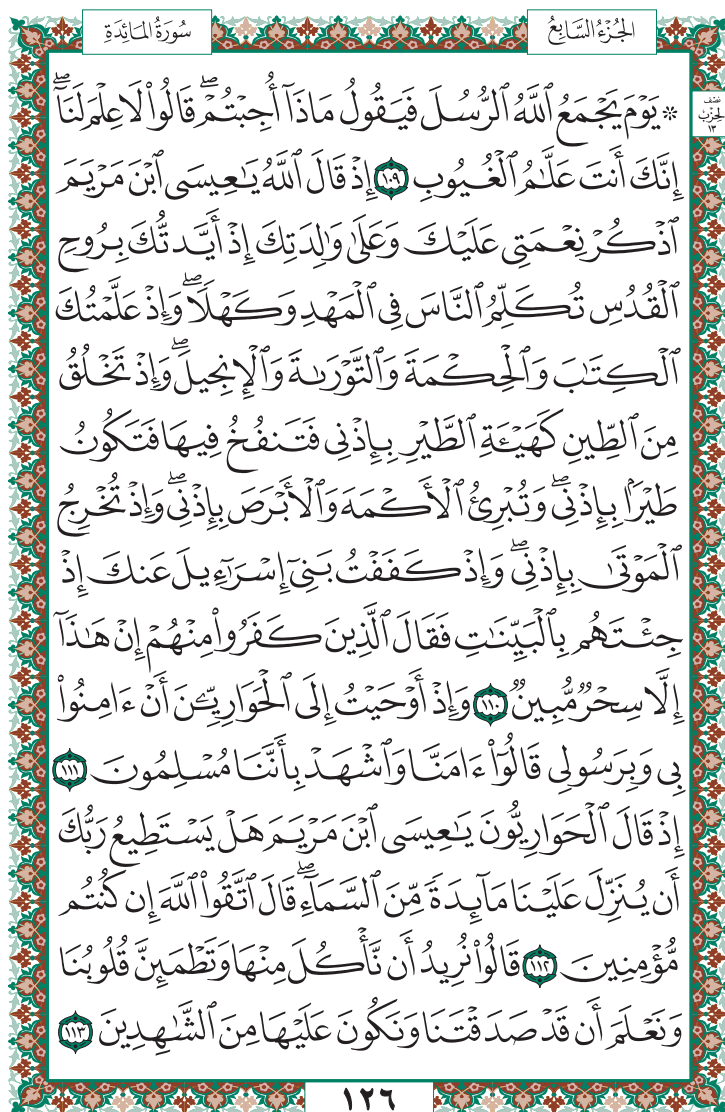 سُورَةُ المَائِدَةِ
الجُزْءُ السَّابِعُ
نصف
الحزب
١٣
۞ يَوْمَ يَجْمَعُ ٱللَّهُ ٱلرُّسُلَ فَيَقُولُ مَاذَآ أُجِبْتُمْۖ قَالُوا۟ لَا عِلْمَ لَنَآۖ
إِنَّكَ أَنتَ عَلَّٰمُ ٱلْغُيُوبِ ١٠٩ إِذْ قَالَ ٱللَّهُ يَٰعِيسَى ٱبْنَ مَرْيَمَ
ٱذْكُرْ نِعْمَتِى عَلَيْكَ وَعَلَىٰ وَٰلِدَتِكَ إِذْ أَيَّدتُّكَ بِرُوحِ
ٱلْقُدُسِ تُكَلِّمُ ٱلنَّاسَ فِى ٱلْمَهْدِ وَكَهْلًاۖ وَإِذْ عَلَّمْتُكَ
ٱلْكِتَٰبَ وَٱلْحِكْمَةَ وَٱلتَّوْرَىٰةَ وَٱلْإِنجِيلَۖ وَإِذْ تَخْلُقُ
مِنَ ٱلطِّينِ كَهَيْـَٔةِ ٱلطَّيْرِ بِإِذْنِى فَتَنفُخُ فِيهَا فَتَكُونُ
طَيْرًۢا بِإِذْنِىۖ وَتُبْرِئُ ٱلْأَكْمَهَ وَٱلْأَبْرَصَ بِإِذْنِىۖ وَإِذْ تُخْرِجُ
ٱلْمَوْتَىٰ بِإِذْنِىۖ وَإِذْ كَفَفْتُ بَنِىٓ إِسْرَٰٓءِيلَ عَنكَ إِذْ
جِئْتَهُم بِٱلْبَيِّنَٰتِ فَقَالَ ٱلَّذِينَ كَفَرُوا۟ مِنْهُمْ إِنْ هَٰذَآ
إِلَّا سِحْرٌ مُّبِينٌ ١١٠ وَإِذْ أَوْحَيْتُ إِلَى ٱلْحَوَارِيِّـۧنَ أَنْ ءَامِنُوا۟
بِى وَبِرَسُولِى قَالُوٓا۟ ءَامَنَّا وَٱشْهَدْ بِأَنَّنَا مُسْلِمُونَ ١١١
إِذْ قَالَ ٱلْحَوَارِيُّونَ يَٰعِيسَى ٱبْنَ مَرْيَمَ هَلْ يَسْتَطِيعُ رَبُّكَ
أَن يُنَزِّلَ عَلَيْنَا مَآئِدَةً مِّنَ ٱلسَّمَآءِۖ قَالَ ٱتَّقُوا۟ ٱللَّهَ إِن كُنتُم
مُّؤْمِنِينَ ١١٢ قَالُوا۟ نُرِيدُ أَن نَّأْكُلَ مِنْهَا وَتَطْمَئِنَّ قُلُوبُنَا
وَنَعْلَمَ أَن قَدْ صَدَقْتَنَا وَنَكُونَ عَلَيْهَا مِنَ ٱلشَّٰهِدِينَ ١١٣
١٢٦